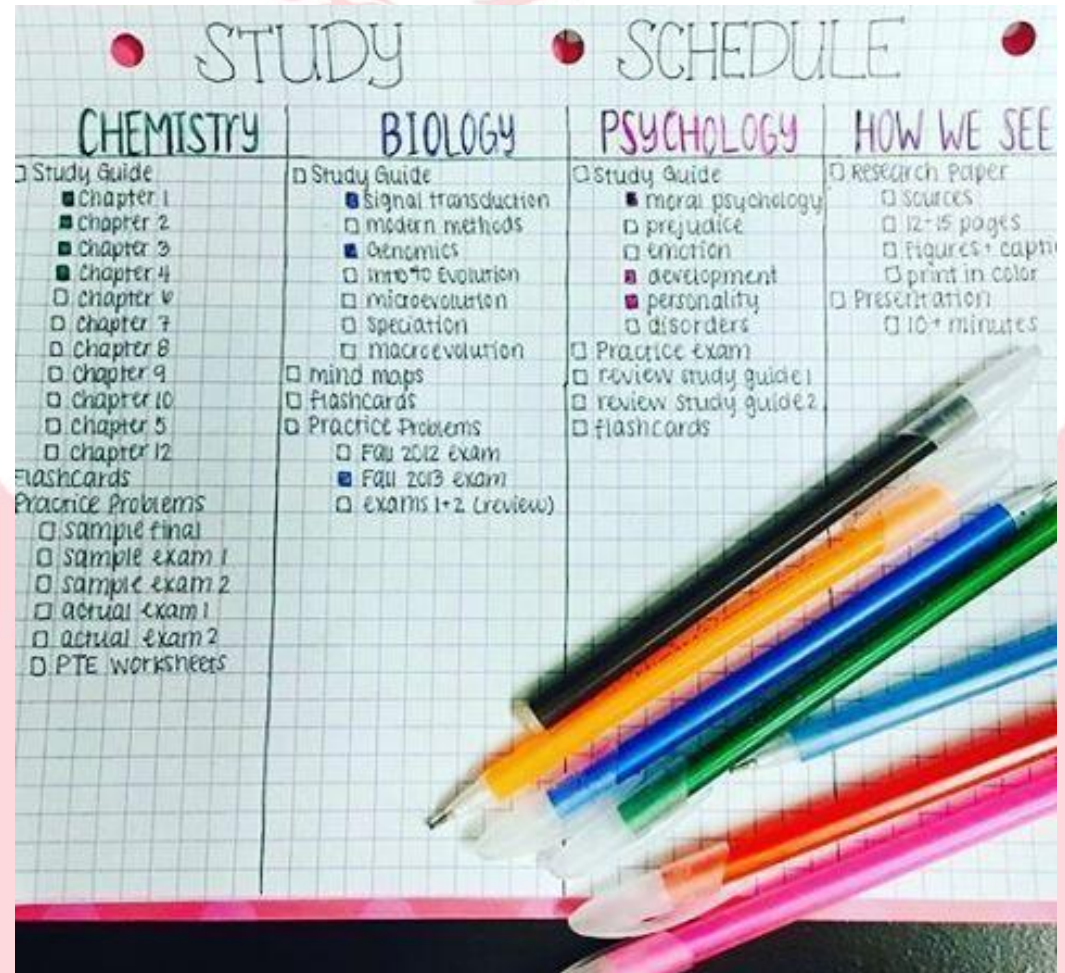 STUDY SCHEDULE
CHEMISTRY
Study Guide
Chapter 1
Chapter 2
Chapter 3
Chapter 4
chapter 6
chapter 7
chapter 8
chapter 9
chapter 10
chapter 5
chapter 12
Flashcards
Practice Problems
sample final
sample exam 1
sample exam 2
actual exam 1
actual exam 2
PTE worksheets
BIOLOGY
Study Guide
signal transduction
modern methods
Genomics
Intro to Evolution
microevolution
speciation
macroevolution
mind maps
flashcards
Practice Problems
Fall 2012 exam
Fall 2013 exam
exams 1+2 (review)
PSYCHOLOGY
Study Guide
moral psychology
prejudice
emotion
development
personality
disorders
Practice exam
review study guide 1
review study guide 2
flashcards
HOW WE SEE
Research Paper
sources
12-15 pages
Figures + capti
print in color
Presentation
10+ minutes